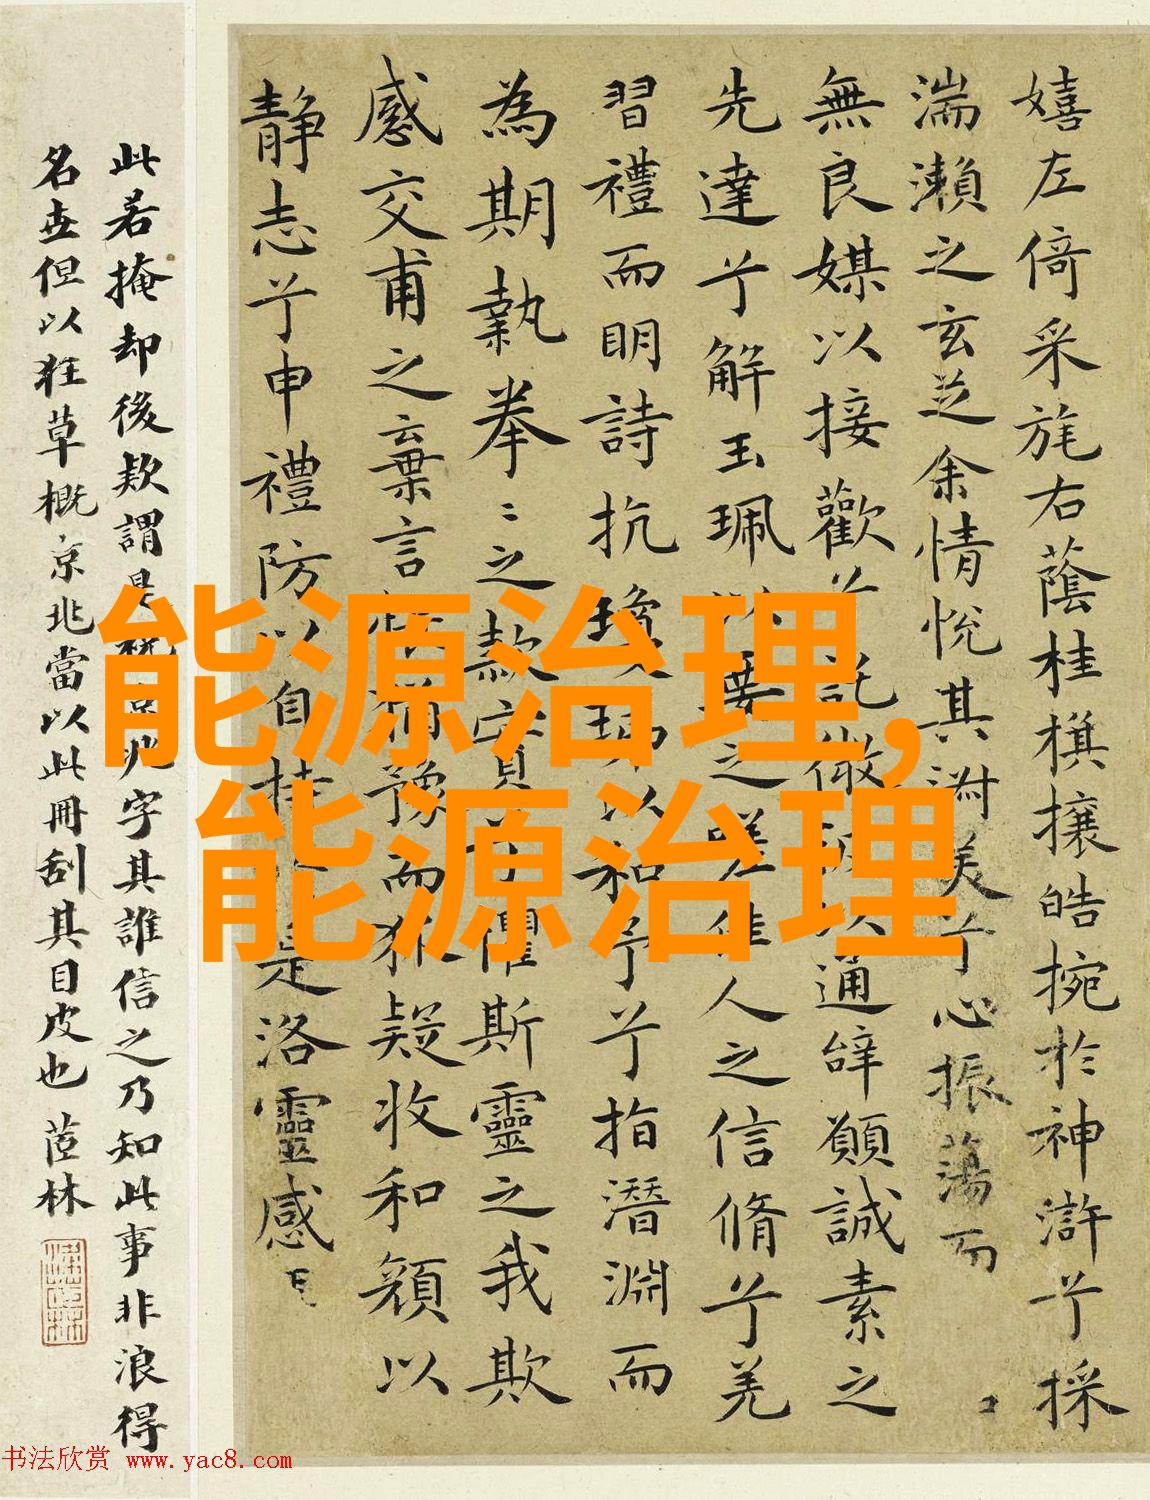 嬉左倚采旄右蔭桂旗攘皓捥於神滸兮採
湍瀨之玄芝余情悅其淑美兮心振蕩而
無良媒以接歡兮託微波以通辭願誠素之
先達兮解玉珮以要之嗟佳人之信脩兮羌
習禮而明詩抗瓊珶以和予兮指潛淵而
為期執拳〻之款實兮懼斯靈之我欺
感交甫之棄言悵猶豫而狐疑收和顏以
靜志兮申禮防以自持於是洛靈感
此若掩却後款謂是兆字其誰信之乃知此事非浪得
名世但以狂草概京兆當以此冊刮其目皮也 茝林
能源治理,
能源治理
书法欣赏 www.yac8.com